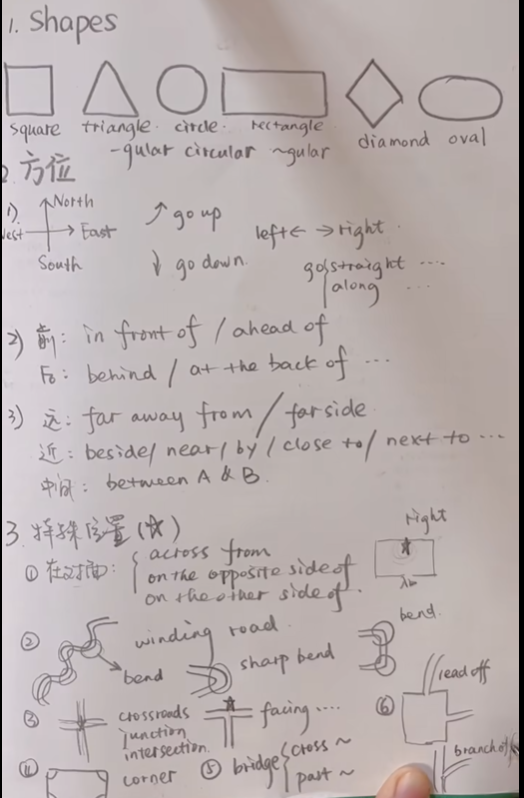 1. Shapes
square triangle. circle. rectangle diamond oval
-gular circular ~gular
2. 方位
1) North
West East
South
↗ go up
↓ go down.
left ← → right.
go straight ....
along ...
2) 前: in front of / ahead of
后: behind / at the back of ...
3) 远: far away from / far side
近: beside / near / by / close to / next to ...
中间: between A & B.
3. 特殊位置 (☆)
① 在对面: across from
on the opposite side of
on the other side of.
right
② winding road.
bend
sharp bend
bend.
③ crossroads
junction
intersection.
facing ....
⑥ road off
branch off
corner
⑤ bridge cross ~
past ~